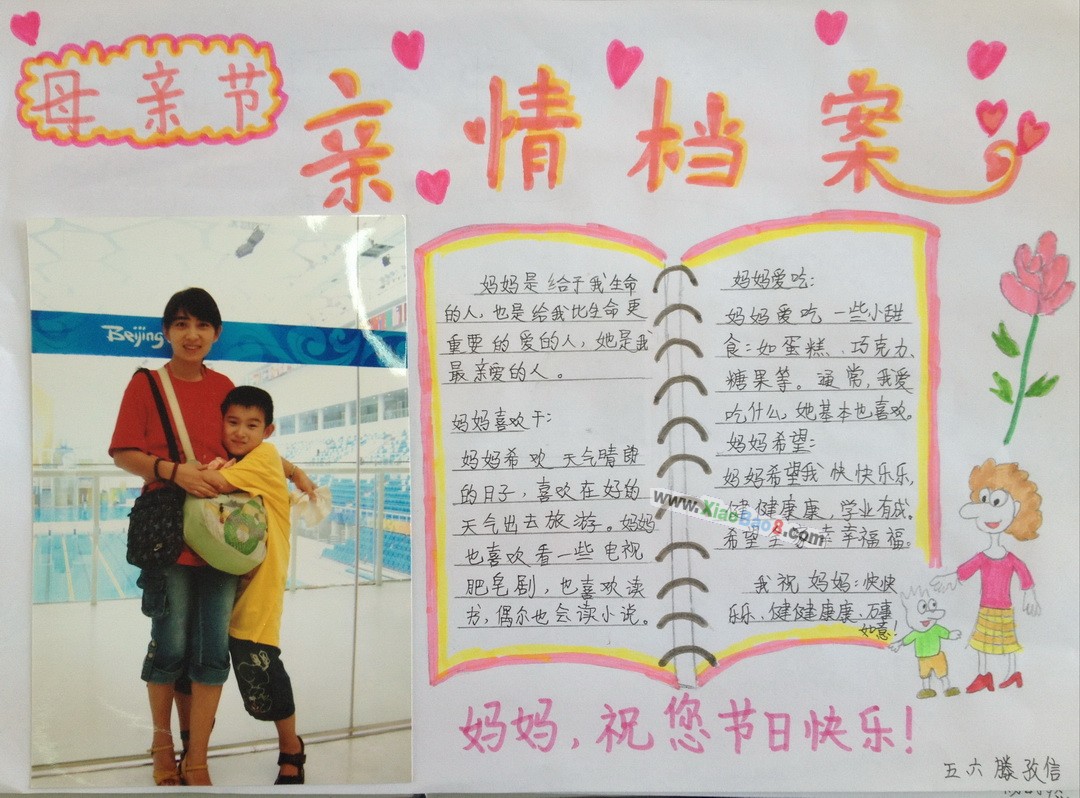 母亲节
亲情档案
Beijing
妈妈是给于我生命
的人，也是给我比生命更
重要的爱的人，她是我
最亲爱的人。
妈妈喜欢干：
妈妈希欢天气晴朗
的日子，喜欢在好的
天气出去旅游。妈妈
也喜欢看一些电视
肥皂剧，也喜欢读
书，偶尔也会读小说。
妈妈爱吃：
妈妈爱吃一些小甜
食：如蛋糕、巧克力、
糖果等。通常，我爱
吃什么，她基本也喜欢。
妈妈希望：
妈妈希望我快快乐乐，
健健康康，学业有成。
希望全 幸幸福福。
我祝妈妈：快快
乐乐、健健康康、万事
如意！
www.XiaoBao8.com
妈妈，祝您节日快乐！
五六 滕孜信